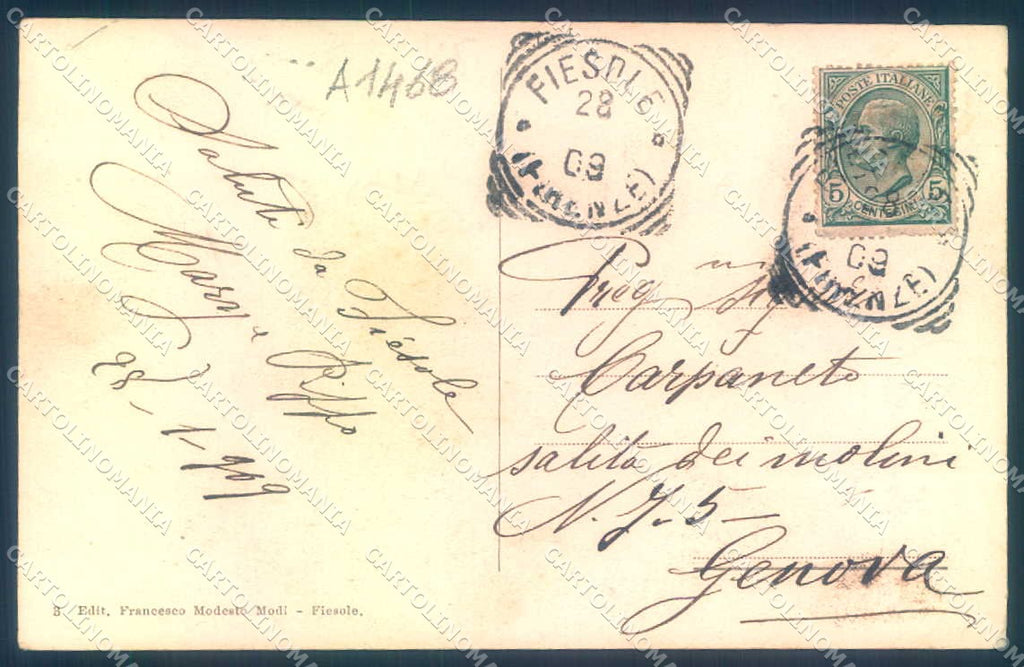 A1468
Saluti da Fiesole
Mary e Pippo
28-1-909
FIESOLE
28
09
(FIRENZE)
POSTE ITALIANE
5 5
CENTESIMI
09
(FIRENZE)
Preg. Sig.
Carpaneto
salita dei molini
N. 7-5-
Genova
3 Edit. Francesco Modesto Modi - Fiesole.
CARTOLINOMANIA